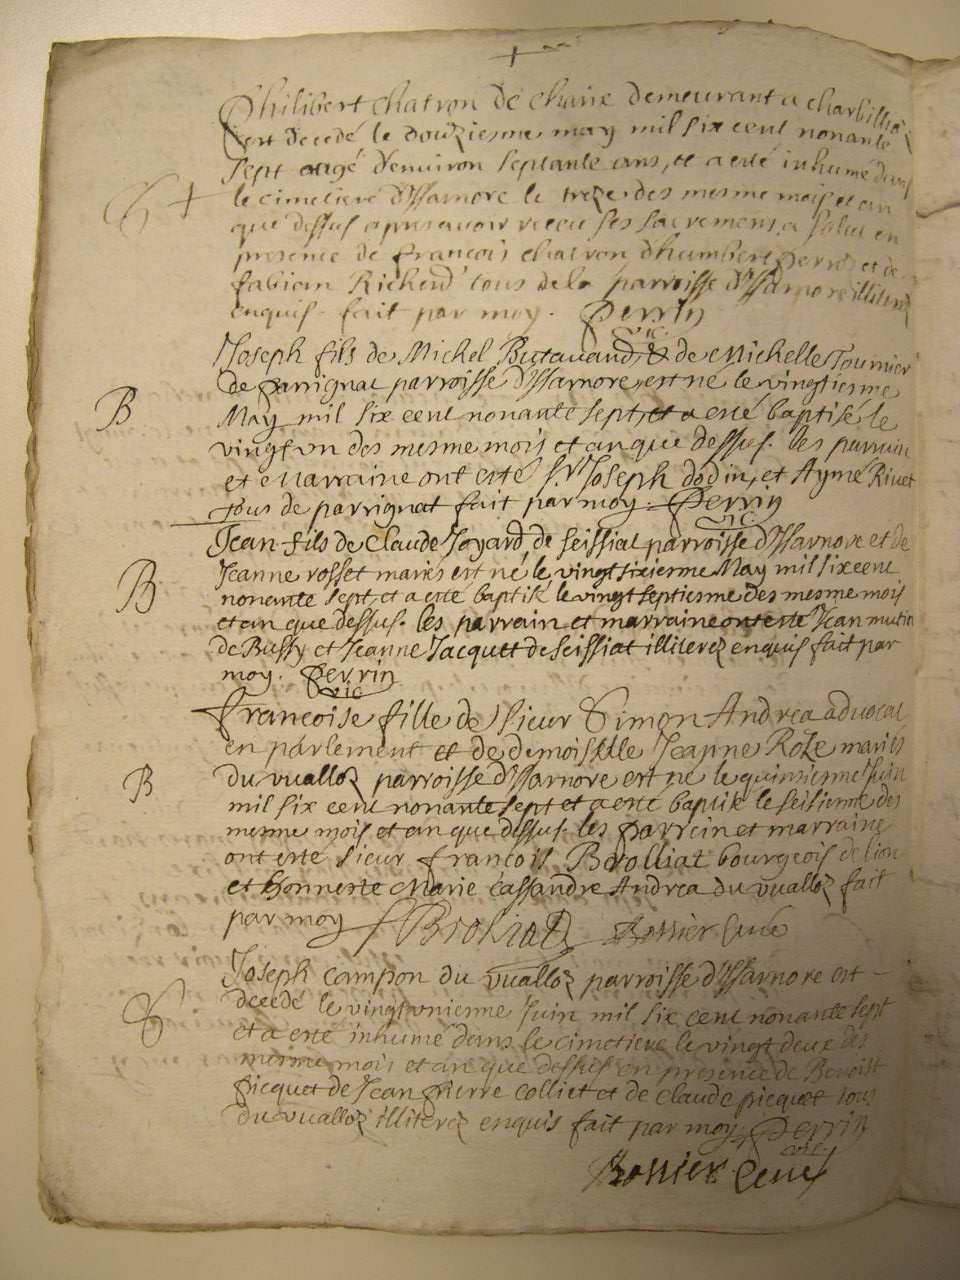 Philibert Chatron de Chaire demeurant a Charbillia
est decedé le douziesme may mil six cent nonante
sept aagé d'environ septante ans, et a esté inhumé dans
le cimetiere d'Issarnore le treze des mesme mois et an
que dessus apres avoir receu ses sacremens, a Solu en
presence de françois Chatron d'humbert perret et de
fabian Richerd tous de la parroisse d'Issarnore illiterez
enquis. fait par moy. Perrin
vic.
B
Joseph fils de Michel Butavand, & de Michelle Tournier
de parrignat parroisse d'Issarnore, est né le vingtiesme
May mil six cent nonante sept, et a esté baptisé le
vingt un des mesme mois et an que dessus. les parrain
et Marraine ont esté Sr Joseph dodin, et Aymé Rivet
Tous de parrignat fait par moy. Perrin
vic
B
Jean fils de Claude Joyard de Seissiat parroisse d'Issarnore et de
Jeanne rosset mariés est né le vingt sixiesme May mil six cent
nonante sept, et a esté baptisé le vingt septiesme des mesme mois
et an que dessus. les parrain et marraine ont esté Jean mutin
de Bussy et Jeanne Jacquet de Seissiat illiterez enquis fait par
moy. Perrin
vic
B
Francoise fille de Sieur Simon Andrea advocat
en parlement et de demoiselle Jeanne Roze mariés
du vualloz parroisse d'Issarnore est né le quinsiesme Juin
mil six cent nonante sept et a esté baptisé le seisiesme des
mesme mois et an que dessus. les parrein et marraine
ont esté Sieur françois Brolliat bourgeois de lion
et honneste Marie Cassandre Andrea du vualloz fait
par moy Brolliat Rossier Curé
Joseph campon du vualloz parroisse d'Issarnore est
decedé le vingt unienme Juin mil six cent nonante sept
et a esté inhumé dans le cimetiere le vingt deux des
mesme mois et an que dessus en presence de Benoist
picquet de Jean pierre Colliet et de Claude picquet tous
du vualloz illiterez enquis fait par moy. Perrin
vic
Rossier Curé